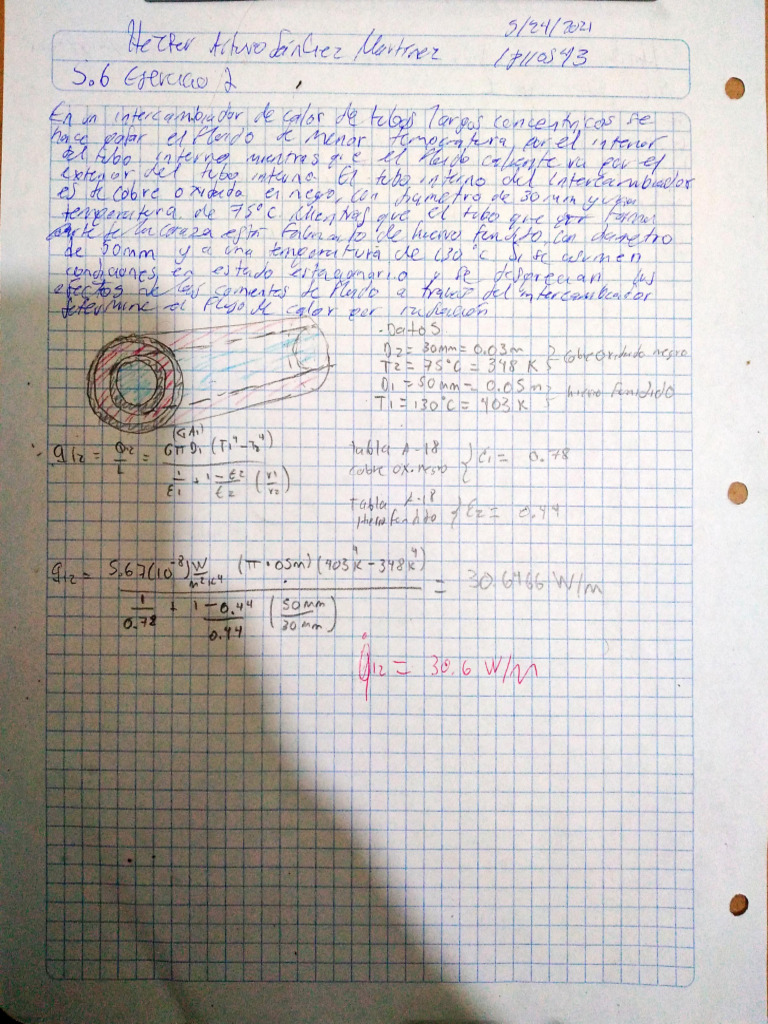 5/24/2021
Héctor Arturo Sánchez Martínez 17110543
5.6 Ejercicio 2
En un intercambiador de calor de tubos largos concentricos se
hace pasar el fluido de menor temperatura por el interior
del tubo interno mientras que el fluido caliente va por el
exterior del tubo interno. El tubo interno del intercambiador
es de cobre oxidado en negro, con diametro de 30 mm y una
temperatura de 75°C mientras que el tubo que por forma
parte de la coraza está fabricado de hierro fundido, con diametro
de 50mm y a una temperatura de 130°C Si se asumen
condiciones en estado estacionario y se desprecian los
efectos de las corrientes de fluido a traves del intercambiador
determine el flujo de calor por radiación
Datos
D2 = 30mm = 0.03m
T2 = 75°C = 348 K } cobre oxidado negro
D1 = 50mm = 0.05m
T1 = 130°C = 403 K } hierro fundido
q12 = Q12/L = (GA1) GπD1 (T1⁴ - T2⁴) / 1/ε1 + 1-ε2/ε2 (r1/r2)
Tabla A-18
cobre ox. negro } ε1 = 0.78
Tabla A-18
hierro fundido } ε2 = 0.44
q12 = 5.67(10⁻⁸) W/m²K⁴ (π·05m)(403⁴K - 348K⁴) / 1/0.78 + 1-0.44/0.44 (50mm/30mm) = 30.6466 W/m
q̇12 = 30.6 W/m